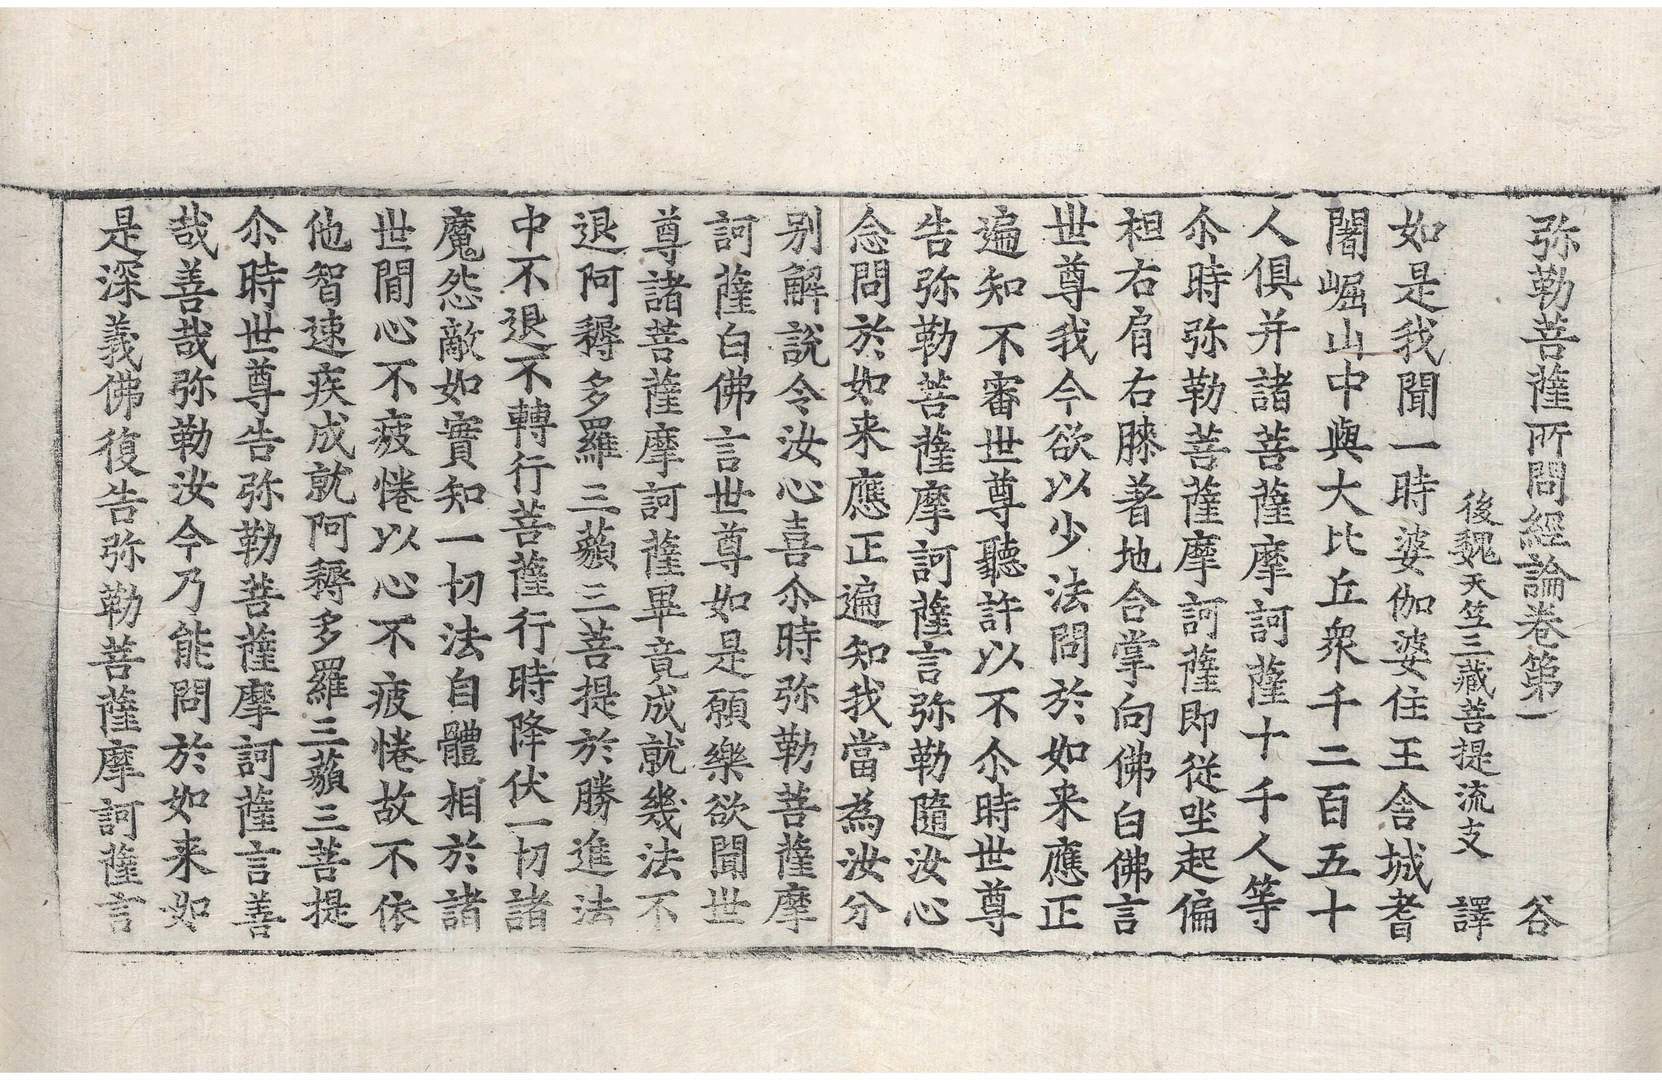 弥勒菩薩所問經論卷第一　谷
後魏天竺三藏菩提流支　譯
如是我聞一時婆伽婆住王舍城耆
闍崛山中與大比丘衆千二百五十
人俱并諸菩薩摩訶薩十千人等
尒時弥勒菩薩摩訶薩即從坐起偏
袒右肩右膝著地合掌向佛白佛言
世尊我今欲以少法問於如来應正
遍知不審世尊聽許以不尒時世尊
告弥勒菩薩摩訶薩言弥勒隨汝心
念問於如来應正遍知我當為汝分
别解說令汝心喜尒時弥勒菩薩摩
訶薩白佛言世尊如是願樂欲聞世
尊諸菩薩摩訶薩畢竟成就幾法不
退阿耨多羅三藐三菩提於勝進法
中不退不轉行菩薩行時降伏一切諸
魔怨敵如實知一切法自體相於諸
世間心不疲惓以心不疲惓故不依
他智速疾成就阿耨多羅三藐三菩提
尒時世尊告弥勒菩薩摩訶薩言善
哉善哉弥勒汝今乃能問於如来如
是深義佛復告弥勒菩薩摩訶薩言